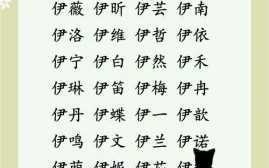 伊薇 伊昕 伊芸 伊南
伊洛 伊维 伊哲 伊依
伊宁 伊白 伊然 伊禾
伊琳 伊笛 伊梅 伊冉
伊丹 伊蝶 伊一 伊歆
伊鸣 伊文 伊兰 伊诺